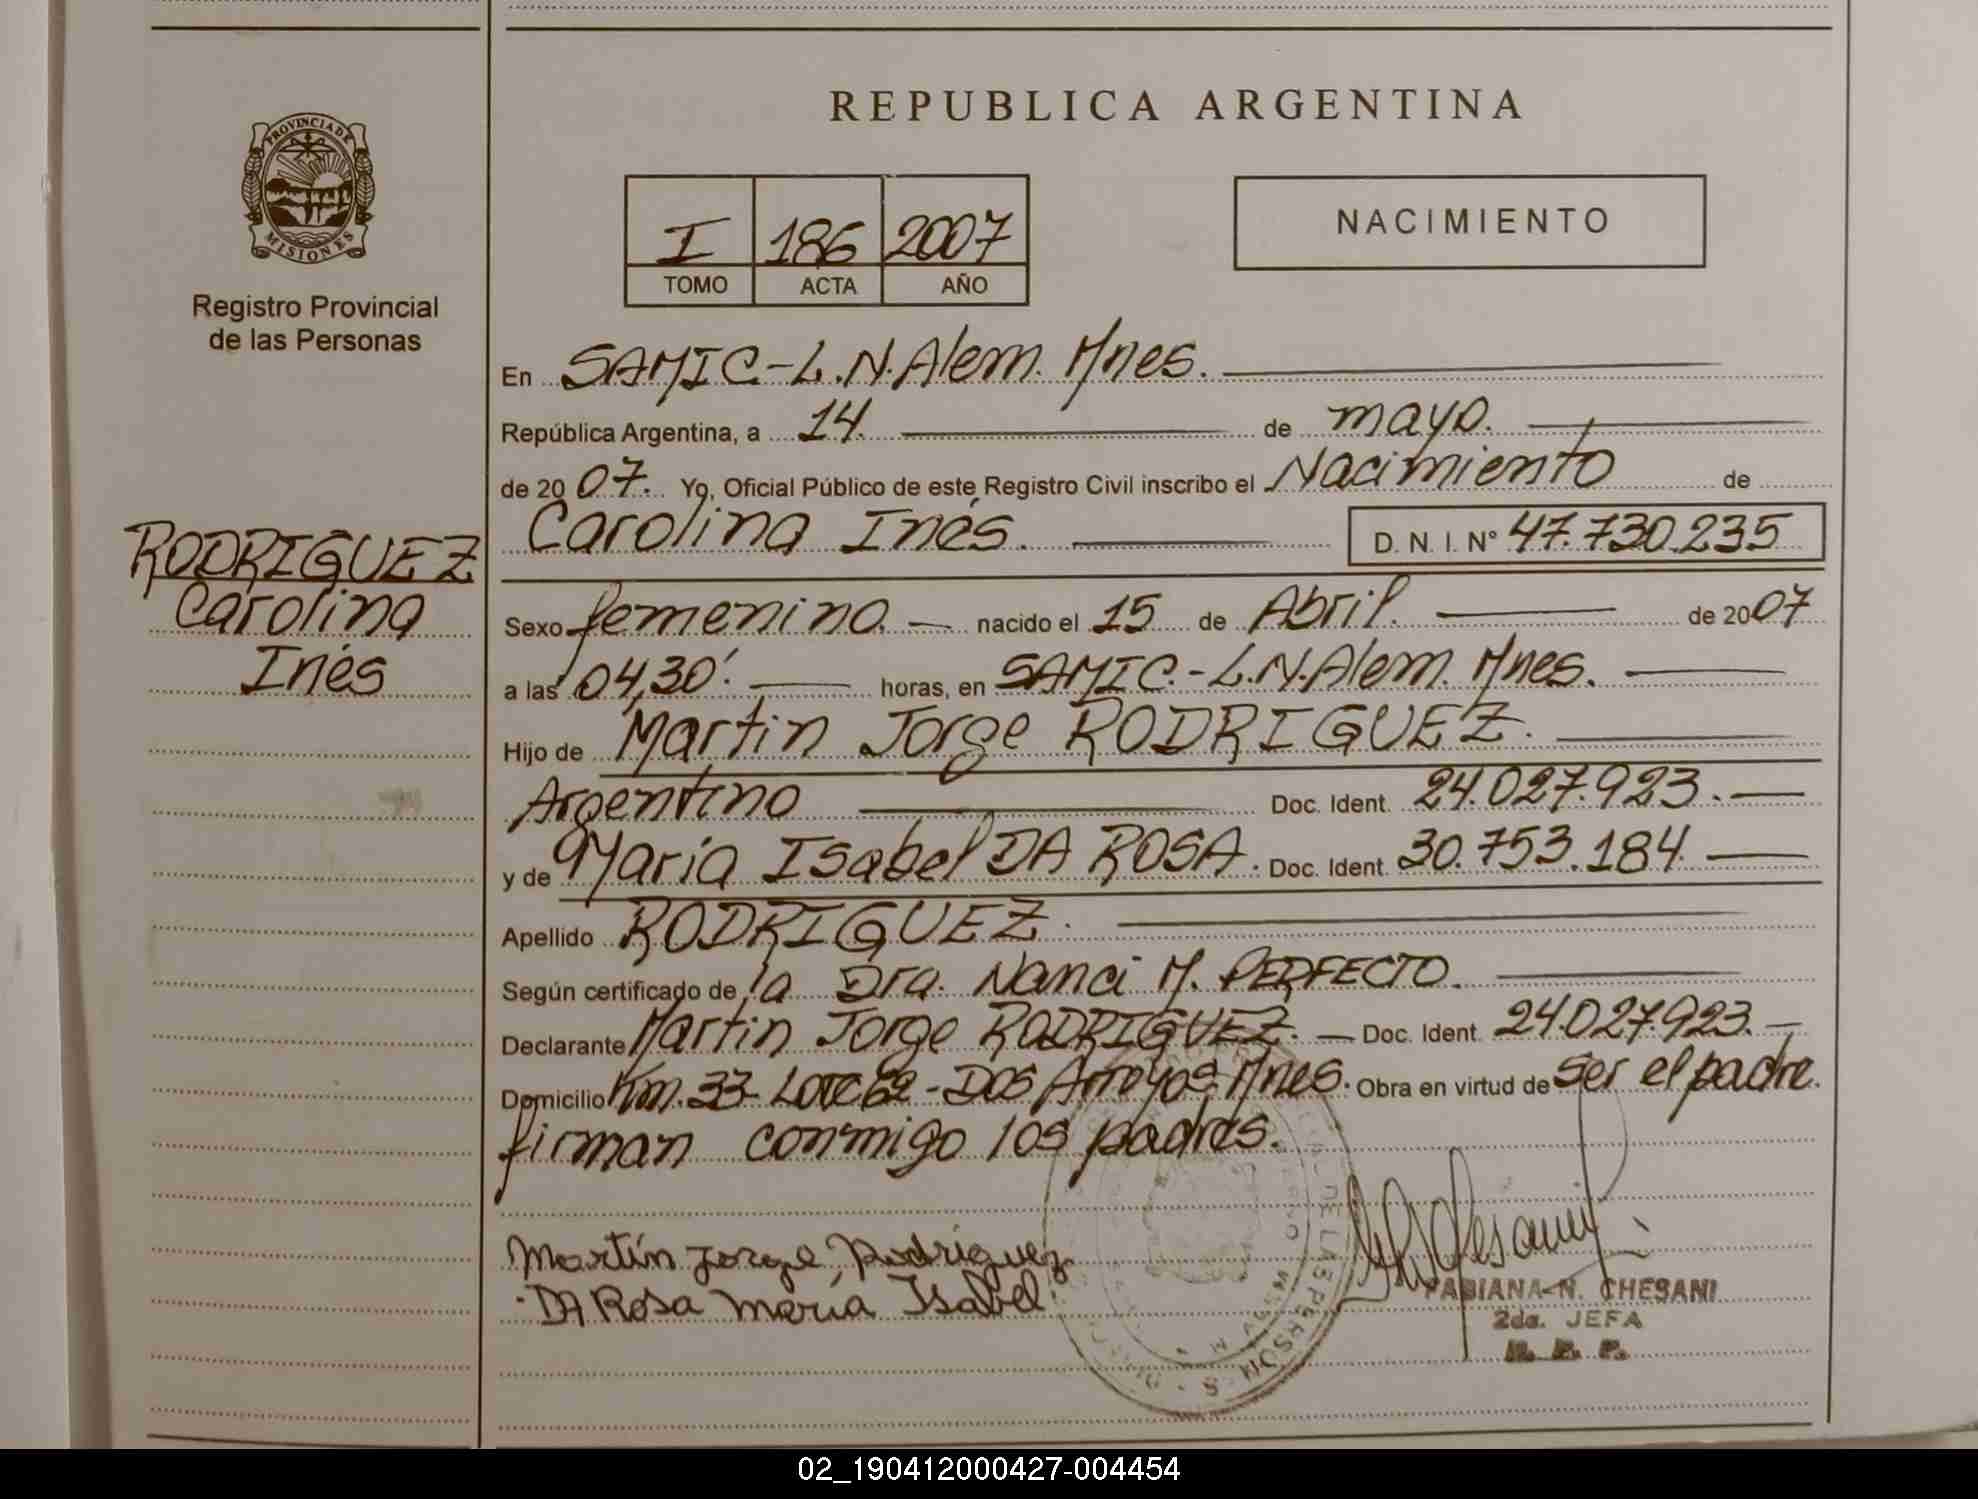 REPUBLICA ARGENTINA
PROVINCIA DE
MISIONES
Registro Provincial
de las Personas
I 186 2007
TOMO ACTA AÑO
NACIMIENTO
En SAMIC-L.N.Alem. Mnes.
República Argentina, a 14. de mayo.
de 2007. Yo, Oficial Público de este Registro Civil inscribo el Nacimiento de
Carolina Inés. D. N. I. N° 47.730.235
RODRIGUEZ
Carolina
Inés
Sexo femenino. nacido el 15 de Abril. de 2007
a las 04,30'. horas, en SAMIC.-L.N.Alem. Mnes.
Hijo de Martin Jorge RODRIGUEZ.
Argentino Doc. Ident. 24.027.923.
y de María Isabel DA ROSA. Doc. Ident. 30.753.184.
Apellido RODRIGUEZ.
Según certificado de la Dra. Nanci M. PERFECTO.
Declarante Martin Jorge RODRIGUEZ. Doc. Ident. 24.027.923.
Domicilio Km. 33- Lote 62 - Dos Arroyos-Mnes. Obra en virtud de ser el padre.
firman conmigo los padres.
Martín Jorge Rodriguez
DA Rosa María Isabel
FABIANA N. CHESANI
2da. JEFA
R. P. P.
02_190412000427-004454